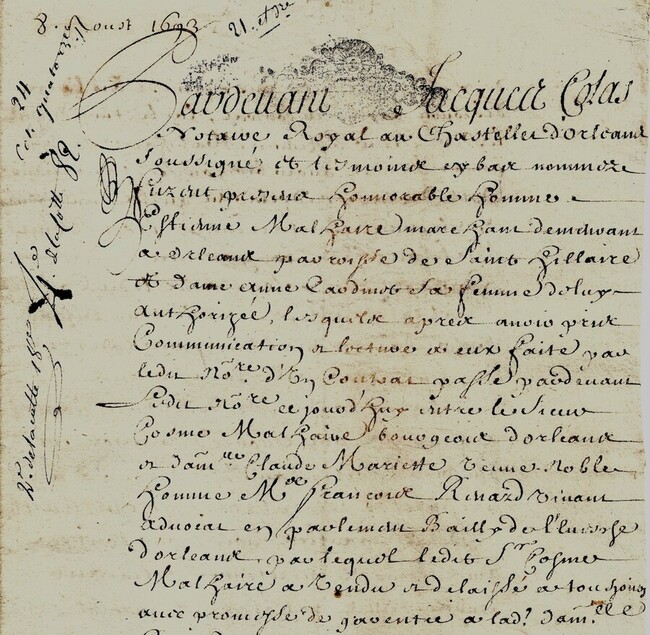 8. Aoust 1693
21. et dre
Pardevant Jacques Colas
Notaire Royal au Chastellet d'orleans
soussigné et tesmoins cy bas nommez
furent presens honnorable homme
Estienne Malhaire marchant demeurant
a orleans parroisse de saint hillaire
et dame anne sa femme de luy
authorizée, lesquels apres avoir pris
Communication et lecture a eux faite par
ledit Nore. d'Un Contrat passé pardevant
ledit Nore ce jourd'huy entre le sieur
Cosme Malhaire bourgeois d'orleans
et damlle Claude Mariette veuve noble
homme Me françois Renard vivant
advocat en parlement Bailly de l'
d'orleans par lequel ledit Sr Cosme
Malhaire a vendu et delaissé a tousjours
avec promesse de garentie a lad. damlle
24
82